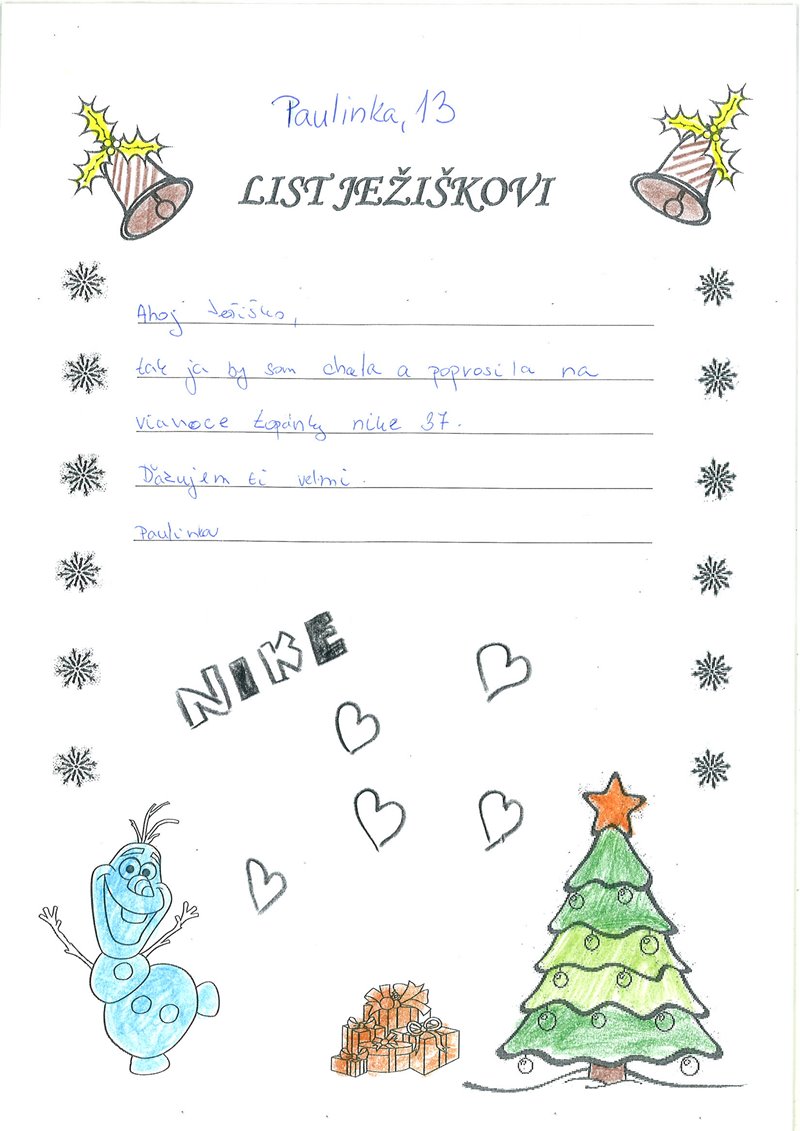 Paulinka, 13
LIST JEŽIŠKOVI
Ahoj Ježiško,
tak ja by som chcela a poprosila na
vianoce topánky nike 37.
Ďakujem ti velmi.
Paulinka
NIKE